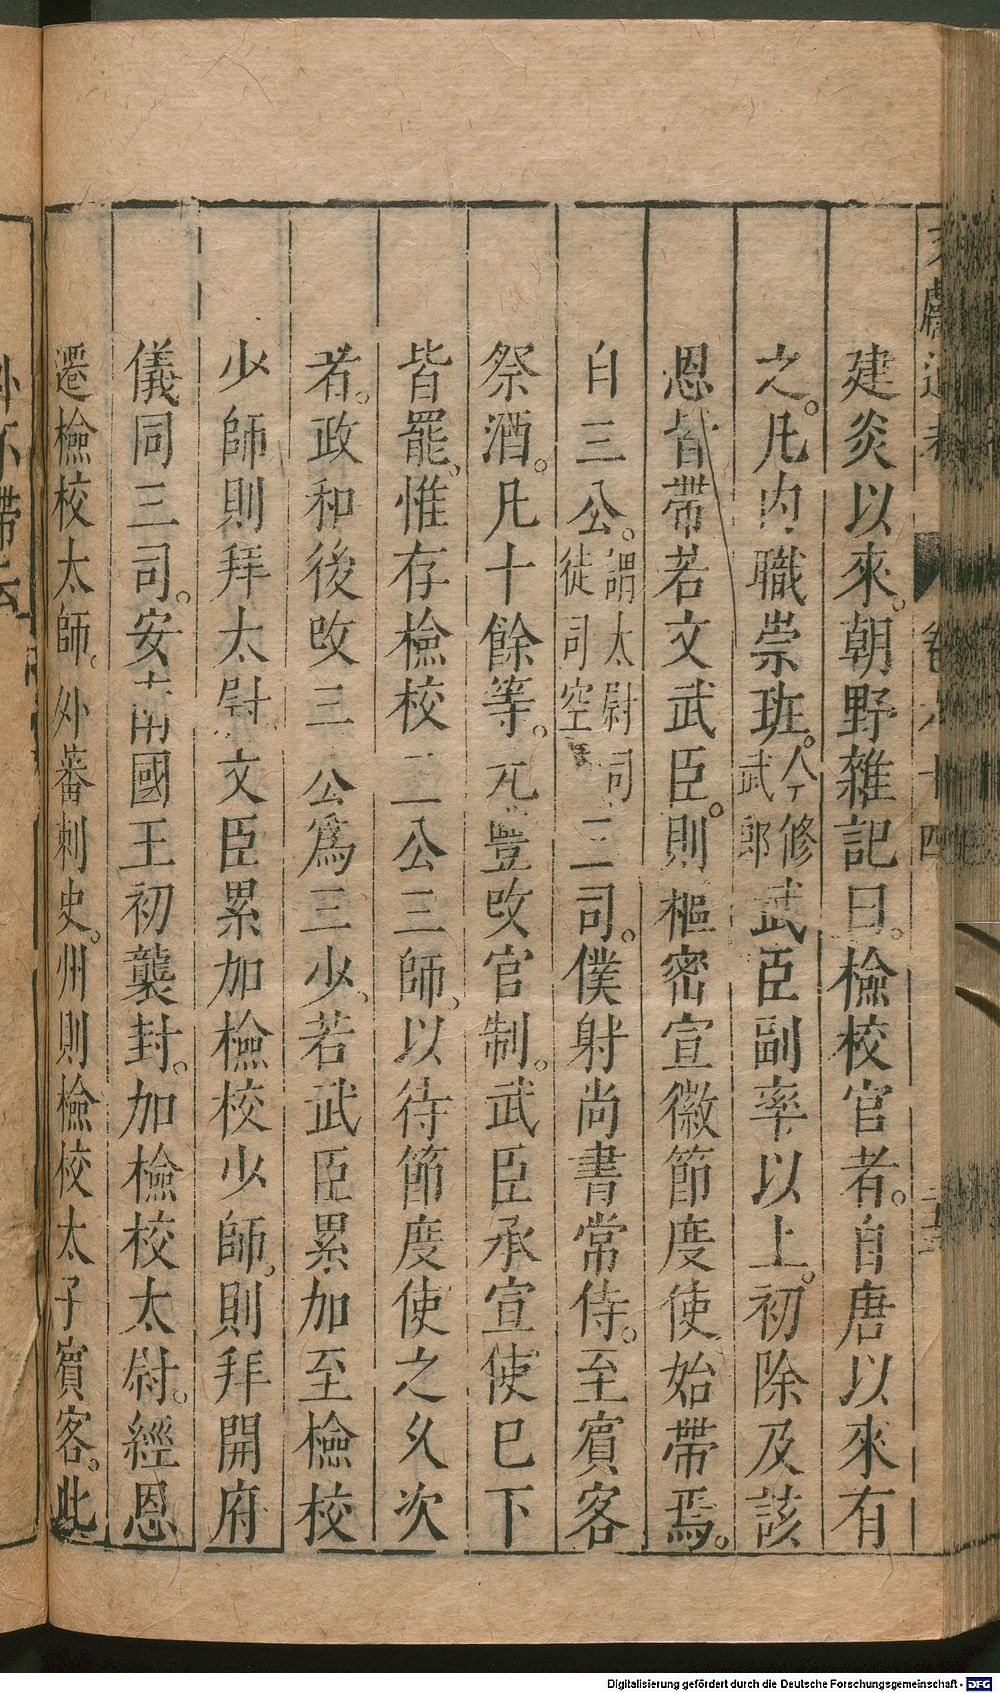 建炎以來。朝野雜記曰。檢校官者。自唐以來有
之。凡内職崇班。今修武郎武臣副率以上。初除及該
恩皆帶若文武臣。則樞密宣徽節度使始帶焉。
自三公。謂太尉司徒司空三司。僕射尚書常侍。至賓客
祭酒。凡十餘等。元豐改官制。武臣承宣使巳下
皆罷。惟存檢校三公三師。以待節度使之久次
者。政和後改三公爲三少。若武臣累加至檢校
少師則拜太尉文臣累加檢校少師。則拜開府
儀同三司。安南國王初襲封。加檢校太尉。經恩
遷檢校太師。外蕃刺史。州則檢校太子賓客。此
Digitalisierung gefördert durch die Deutsche Forschungsgemeinschaft - DFG